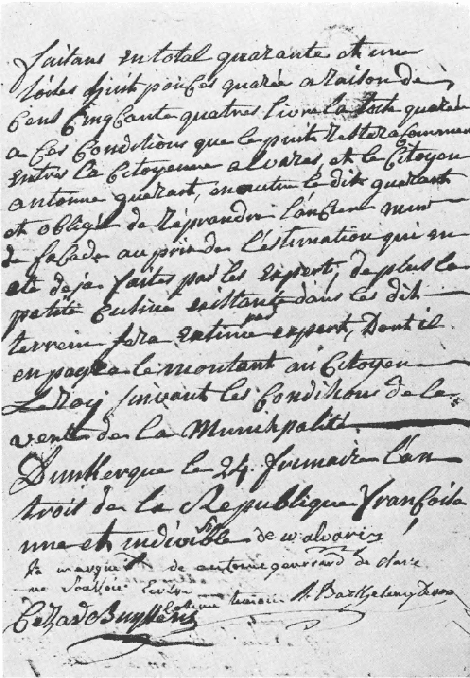 faitans en total quarante et une
toises huit pouces quarée a raison de
Cens Cinqcante quatres Livre la toise quarée
a Ces Conditions que le puit Restera Commun
entres La Citoyenne alvares, et le Citoyen
antoinne querart, en outre le dit querart
et obligé de Réprandre L'ancien mur
de façade au prix de L'estimation qui en
eté deja faites par les expert, de plus la
petite Cuisine existante dans les dit
terrein sera estimé par expert, Dont il
en payera le montant au Citoyen
LeRoy suivant les Conditions de la
vente de la Municipalité.
Dunkerque le 24 frimaire L'an
trois de la Republique françoise
une et indivisible de w alvares
la marque de antoinne querard de
ne Sachant Ecrire
temoin Barthelemy